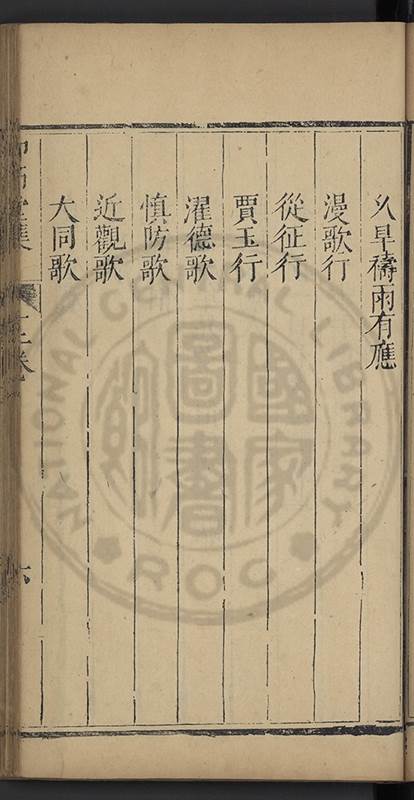 久旱禱雨有應
漫歌行
從征行
賈玉行
濯德歌
慎防歌
近觀歌
大同歌
國家圖書館
NATIONAL LIBRARY
ROC